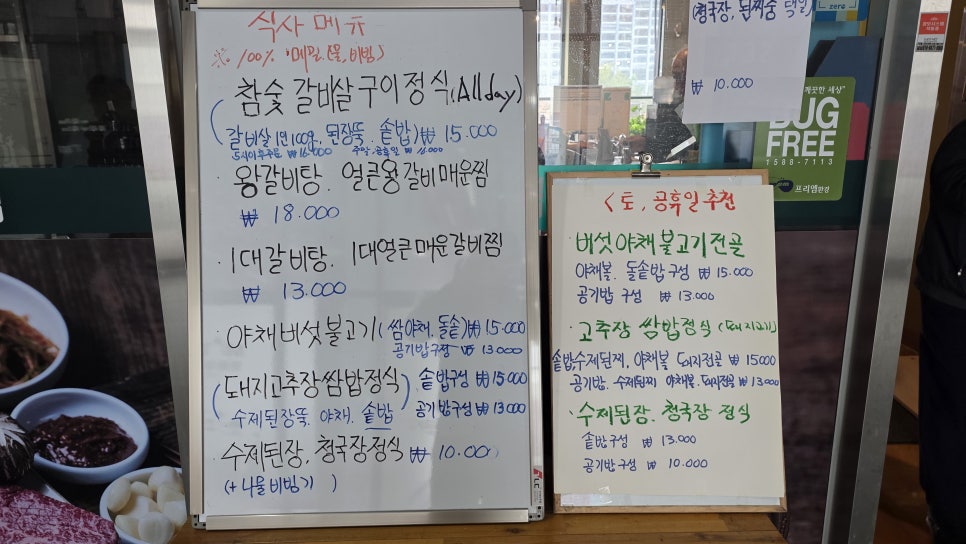 식사 메뉴
※ 100% 메밀 (물, 비빔)
참숯 갈비살 구이정식 (All day)
(갈비살 1인 100g, 된장뚝. 솥밥) ₩ 15.000
5시이후주문 ₩ 16.000 주말.공휴일 ₩
· 왕갈비탕. 얼큰왕갈비매운찜
₩ 18.000
· 1대갈비탕. 1대얼큰매운갈비찜
₩ 13.000
야채버섯불고기 (쌈야채. 돌솥) ₩ 15.000
공기밥구성 ₩ 13.000
(돼지고추장쌈밥정식) 솥밥구성 ₩ 15.000
수제된장뚝. 야채. 솥밥 공기밥구성 ₩ 13.000
수제된장, 청국장정식 ₩ 10.000
(+ 나물비빔기 )
(청국장, 된찌중 택일)
₩ 10.000
깨끗한 세상"
BUG
FREE
1588-7113
프리엠환경
zero
< 토, 공휴일 추천
· 버섯야채불고기전골
야채볼. 돌솥밥구성 ₩ 15.000
공기밥 구성 ₩ 13.000
· 고추장 쌈밥정식 (돼지고기)
솥밥, 수제된찌, 야채볼 돼지전골 ₩ 15000
공기밥. 수제된찌 야채볼. 돼지전골 ₩ 13.000
· 수제된장. 청국장 정식
솥밥구성 ₩ 13.000
공기밥구성 ₩ 10.000